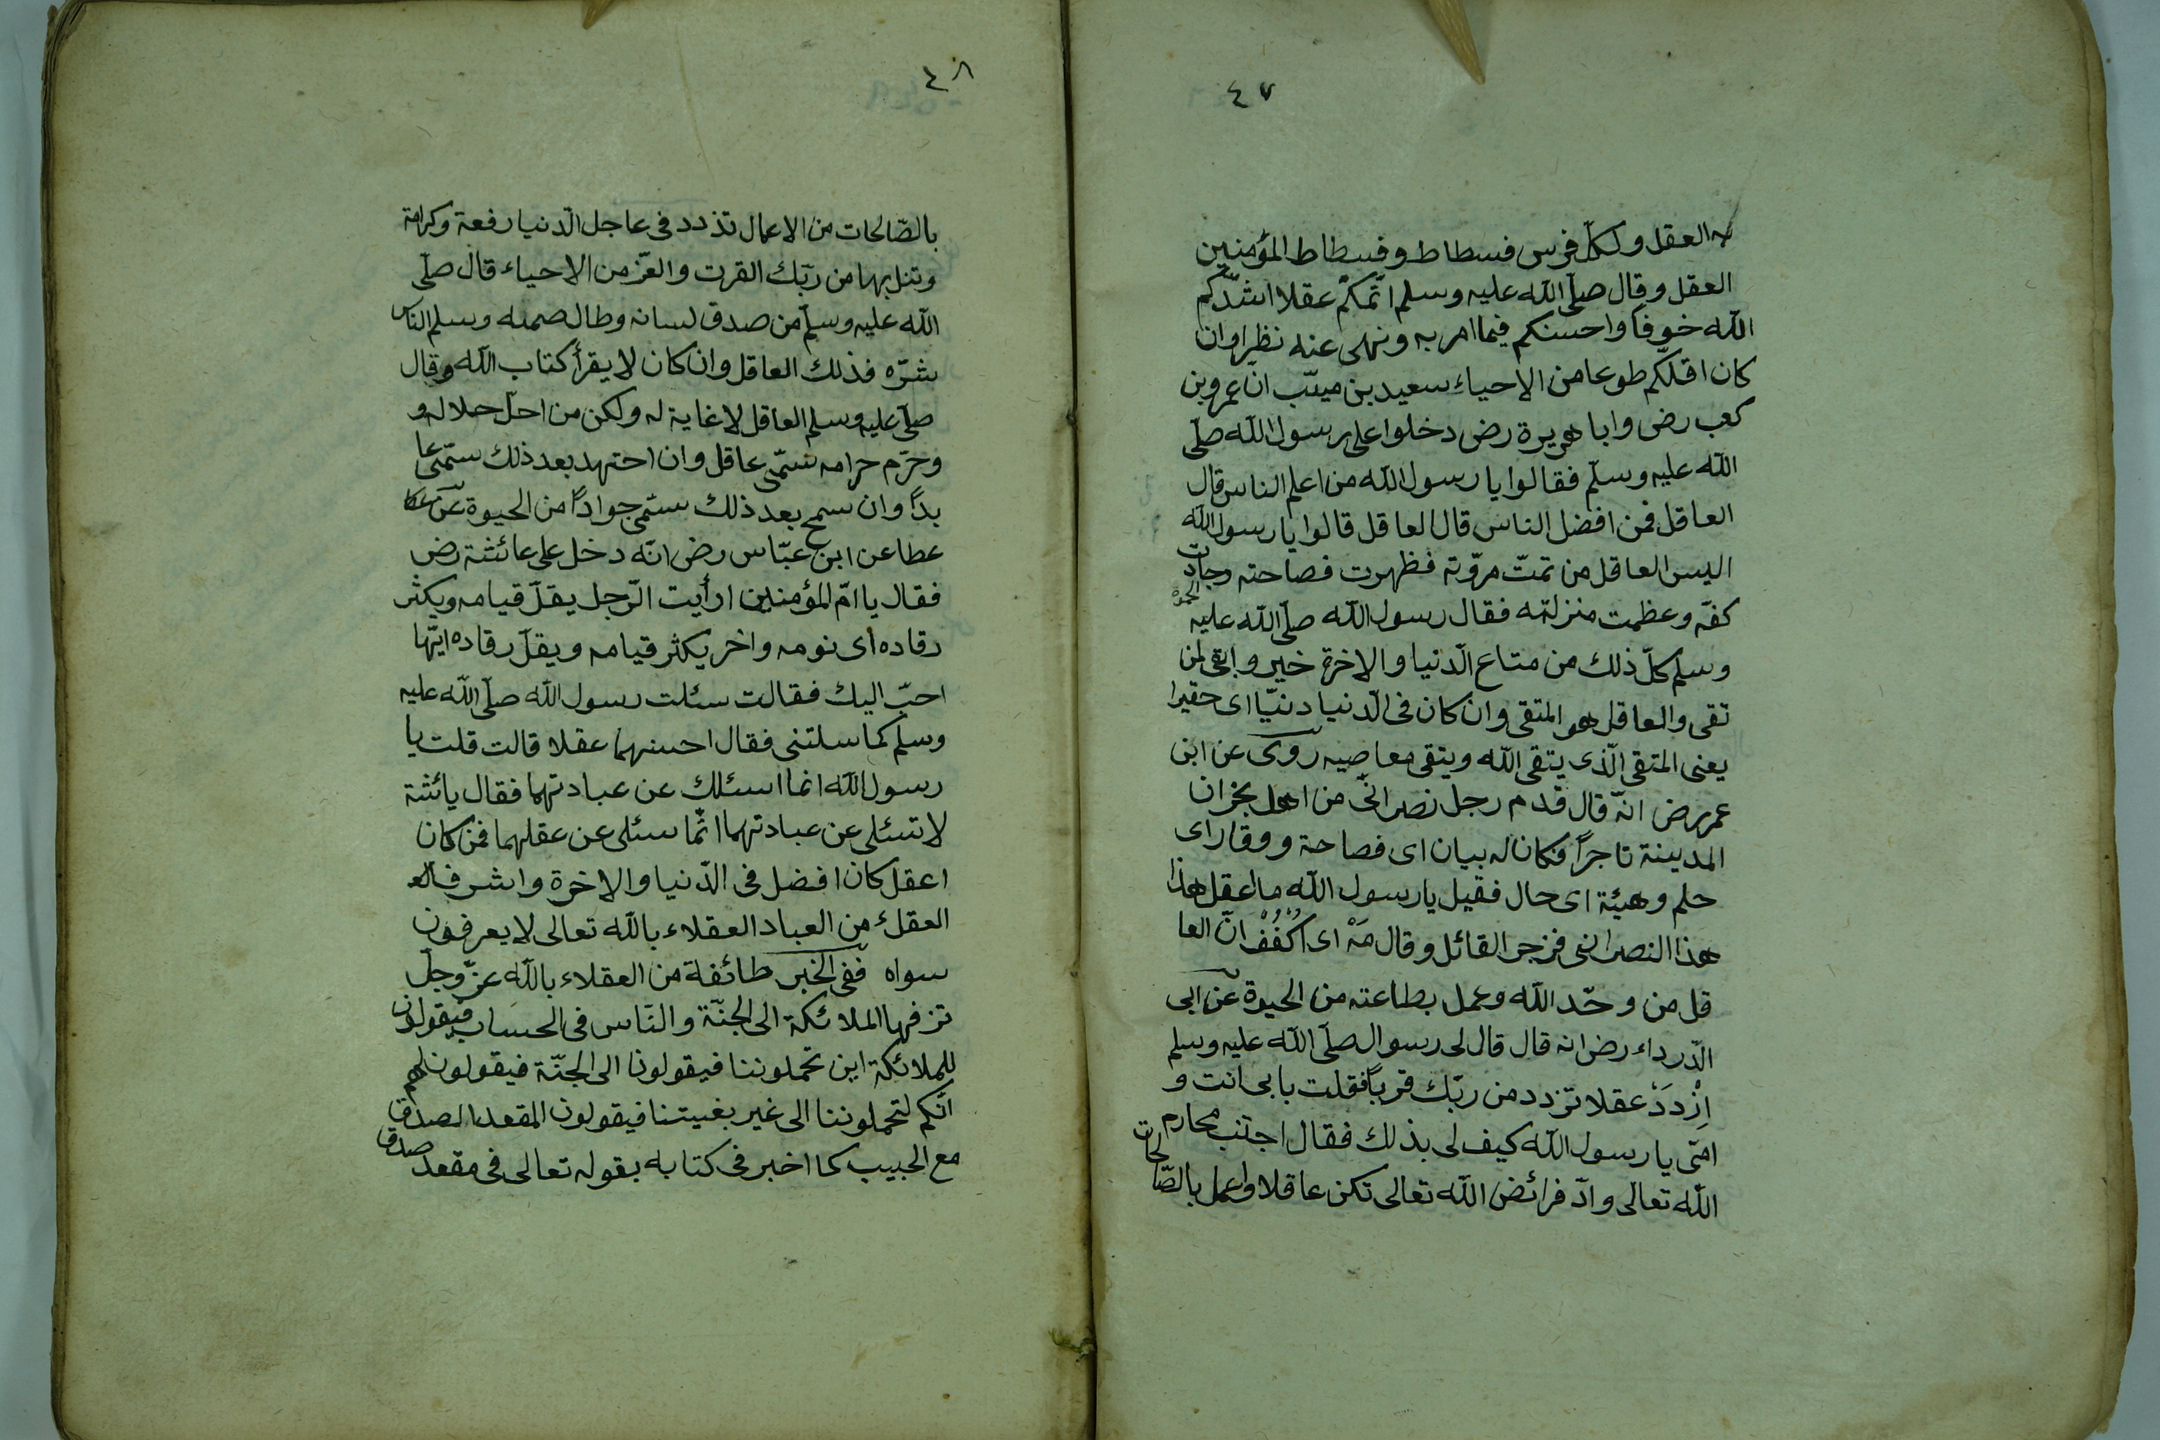 ٤٧
له العقل ولكلّ فرس فسطاط وفسطاط المؤمنين
العقل وقال صلّى اللّه عليه وسلم اتمّكم عقلا اشدّكم
اللّه خوفا واحسنكم فيما امر به ونهى عنه نظرا وان
كان اقلّكم طوعا من الاحياء سعيد بن ميسّب ان عمرو بن
كعب رض وابا هريرة رض دخلوا على رسول اللّه صلّى
اللّه عليه وسلّم فقالوا يا رسول اللّه من اعلم الناس قال
العاقل فمن افضل الناس قال العاقل قالوا يا رسول اللّه
اليس العاقل من تمتّ مروّته فظهرت فصاحته وجادت
كفّه وعظمت منزلته فقال رسول اللّه صلّى اللّه عليه
وسلم كلّ ذلك من متاع الدّنيا والاخرة خير وابقى لمن
تقى والعاقل هو المتقى وان كان فى الدّنيا دنيّا اى حقيرا
يعنى المتقى الّذى يتقى اللّه ويتقى معاصيه روى عن ابن
عمر رض انّه قال قدم رجل نصرانىّ من اهل نجران
المدينة تاجراً فكان له بيان اى فصاحة ووقار اى
حلم وهيئة اى حال فقيل يا رسول اللّه ما اعقل هذا
هذا النصرانى فزجر القائل وقال مَهْ اى اُكْفُفْ انّ العا
قل من وحّد اللّه وعمل بطاعته من الحيوة عن ابى
الدّرداء رض انه قال قال لى رسول صلّى اللّه عليه وسلم
اِزْدَدْ عقلا تزدد من ربّك قرباً فقلت بابى انت و
امّى يا رسول اللّه كيف لى بذلك فقال اجتنب محارم
اللّه تعالى وادّ فرائض اللّه تعالى تكن عاقلا واعمل بالصّالحات
٤٨
بالصّالحات من الاعمال تذدد فى عاجل الدّنيا رفعة وكرامة
وتنل بها من ربّك القرت والعزّ من الاحياء قال صلّى
اللّه عليه وسلّم من صدق لسانه وطال صمته وسلم الناس
شرّه فذلك العاقل وان كان لا يقرأ كتاب اللّه وقال
صلّى عليه وسلم العاقل لا غاية له ولكن من احلّ حلاله و
وحرّم حرامه سمّى عاقل وان احتهد بعد ذلك ستمّى عا
بداً وان سمح بعد ذلك ستمّى جواداً من الحيوة عن
عطا عن ابن عبّاس رض انّه دخل على عائشة رض
فقال يا امّ المؤمنين ارأيت الرّجل يقلّ قيامه ويكثر
رقاده اى نومه واخر يكثر قيامه ويقلّ رقاده ايّها
احبّ اليك فقالت سئلت رسول اللّه صلّى اللّه عليه
وسلم كما سلتنى فقال احسنهما عقلا قالت قلت يا
رسول اللّه انما اسئلك عن عبادتهما فقال يائشة
لا تسئلى عن عبادتهما انّما سئلى عن عقلهما فمن كان
اعقل كان افضل فى الدّنيا والاخرة واشرف
العقلء من العباد العقلاء باللّه تعالى لا يعرفون
سواه ففى الخبر طائفة من العقلاء باللّه عزّ وجلّ
تزفها الملائكة الى الجنّة والنّاس فى الحساب فيقولون
للملائكة اين تحملوننا فيقولونا الى الجنّة فيقولون لهم
انّكم لتحملوننا الى غير بغيتنا فيقولون المقعد الصدق
مع الحبيب كما اخبر فى كتابه بقوله تعالى فى مقعد صدق